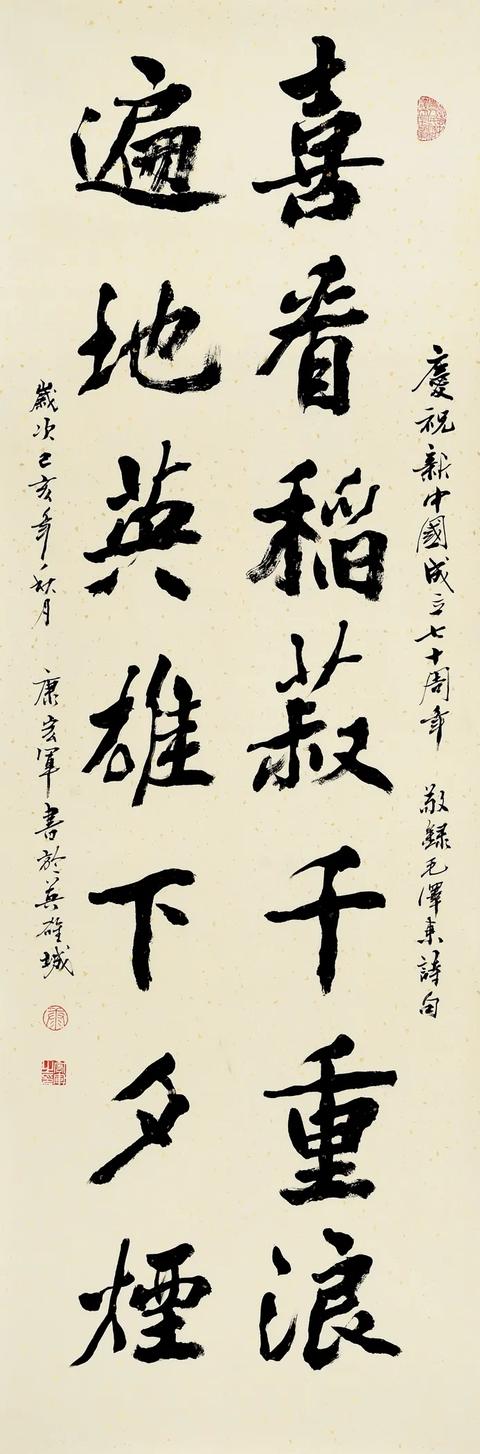 慶祝新中國成立七十周年 敬録毛澤東詩句
喜看稻菽千重浪
遍地英雄下夕煙
歲次己亥年秋月 康宏軍書於英雄城